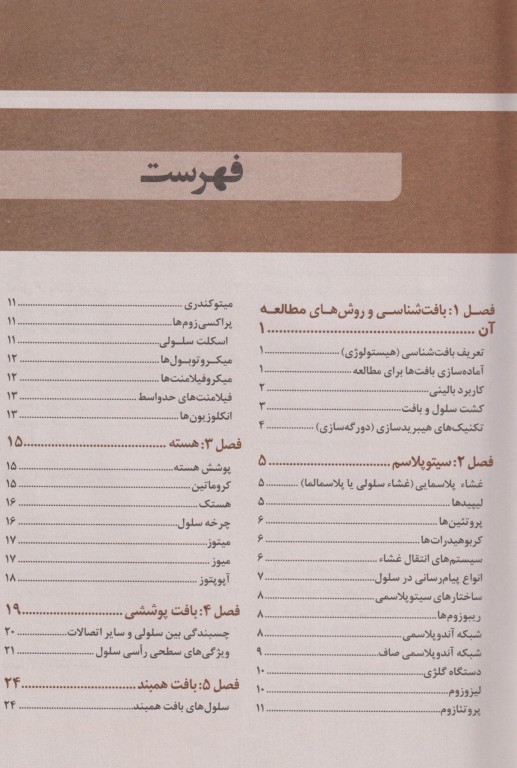 فهرست
فصل ۱: بافت‌شناسی و روش‌های مطالعه
آن ........................................ ۱
تعریف بافت‌شناسی (هیستولوژی) ........................ ۱
آماده‌سازی بافت‌ها برای مطالعه ........................ ۱
کاربرد بالینی ........................ ۲
کشت سلول و بافت ........................ ۳
تکنیک‌های هیبریدسازی (دورگه‌سازی) ........................ ۴
فصل ۲: سیتوپلاسم ........................ ۵
غشاء پلاسمایی (غشاء سلولی یا پلاسمالما) ............ ۵
لیپیدها ........................ ۵
پروتئین‌ها ........................ ۶
کربوهیدرات‌ها ........................ ۶
سیستم‌های انتقال غشاء ........................ ۶
انواع پیام‌رسانی در سلول ........................ ۷
ساختارهای سیتوپلاسمی ........................ ۸
ریبوزوم‌ها ........................ ۸
شبکه آندوپلاسمی ........................ ۸
شبکه آندوپلاسمی صاف ........................ ۹
دستگاه گلژی ........................ ۱۰
لیزوزوم ........................ ۱۰
پروتئازوم ........................ ۱۱
میتوکندری ........................ ۱۱
پراکسی‌زوم‌ها ........................ ۱۱
اسکلت سلولی ........................ ۱۱
میکروتوبول‌ها ........................ ۱۲
میکروفیلامنت‌ها ........................ ۱۲
فیلامنت‌های حدواسط ........................ ۱۳
انکلوزیون‌ها ........................ ۱۳
فصل ۳: هسته ........................ ۱۵
پوشش هسته ........................ ۱۵
کروماتین ........................ ۱۵
هستک ........................ ۱۶
چرخه سلول ........................ ۱۶
میتوز ........................ ۱۷
میوز ........................ ۱۷
آپوپتوز ........................ ۱۸
فصل ۴: بافت پوششی ........................ ۱۹
چسبندگی بین سلولی و سایر اتصالات ........................ ۲۰
ویژگی‌های سطحی رأسی سلول ........................ ۲۱
فصل ۵: بافت همبند ........................ ۲۴
سلول‌های بافت همبند ........................ ۲۴